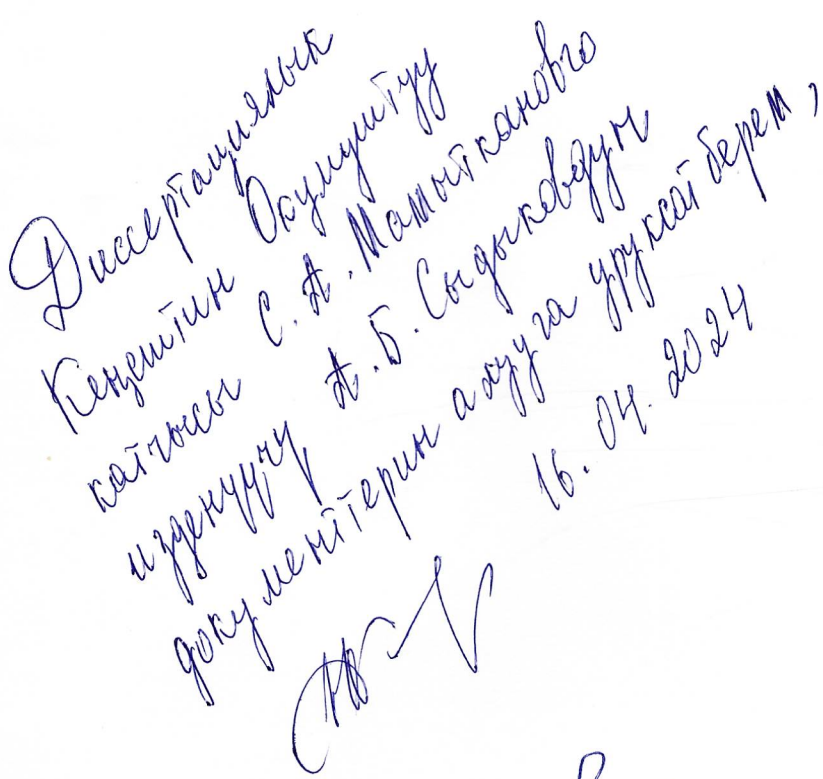 Диссертациялык
Кеңештин Окумуштуу
катчысы С.А. Мамыткановго
изденүүчү А.Б. Сыдыковдун
документтерин алууга уруксат берем,
16.04.2024